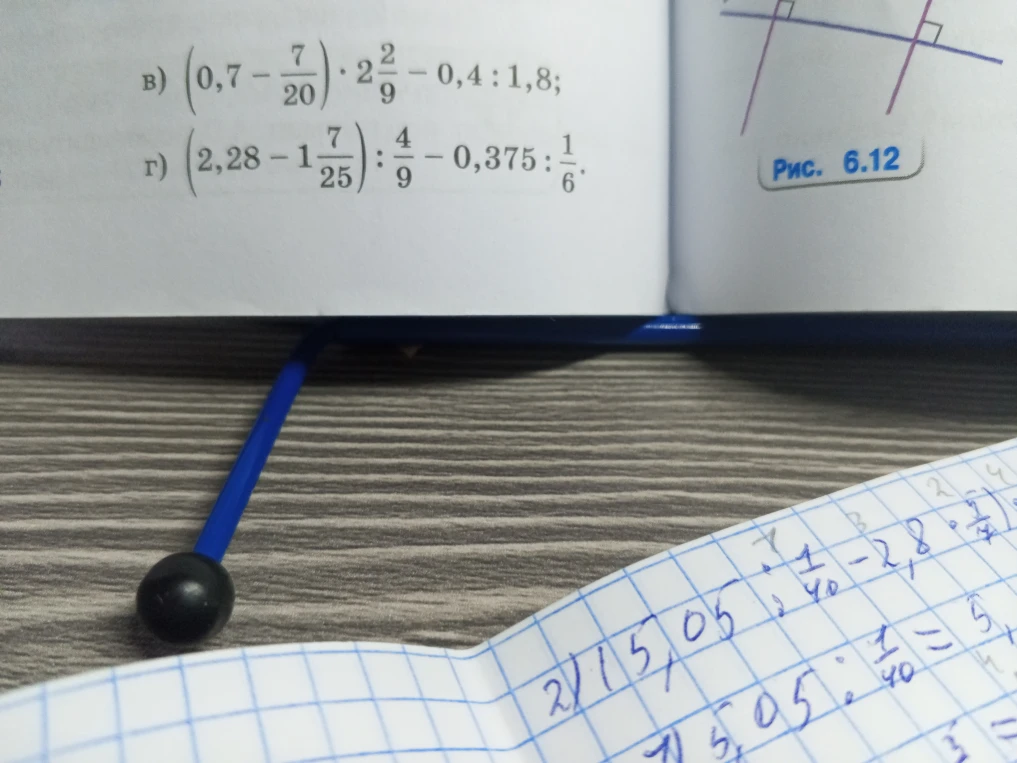 в) (0,7 − 7/20) · 2 2/9 − 0,4 : 1,8;
г) (2,28 − 1 7/25) : 4/9 − 0,375 : 1/6.
Рис. 6.12
2) (5,05 : 1/40 − 2,8 · 5/7)
1) 5,05 : 1/40 = 5,